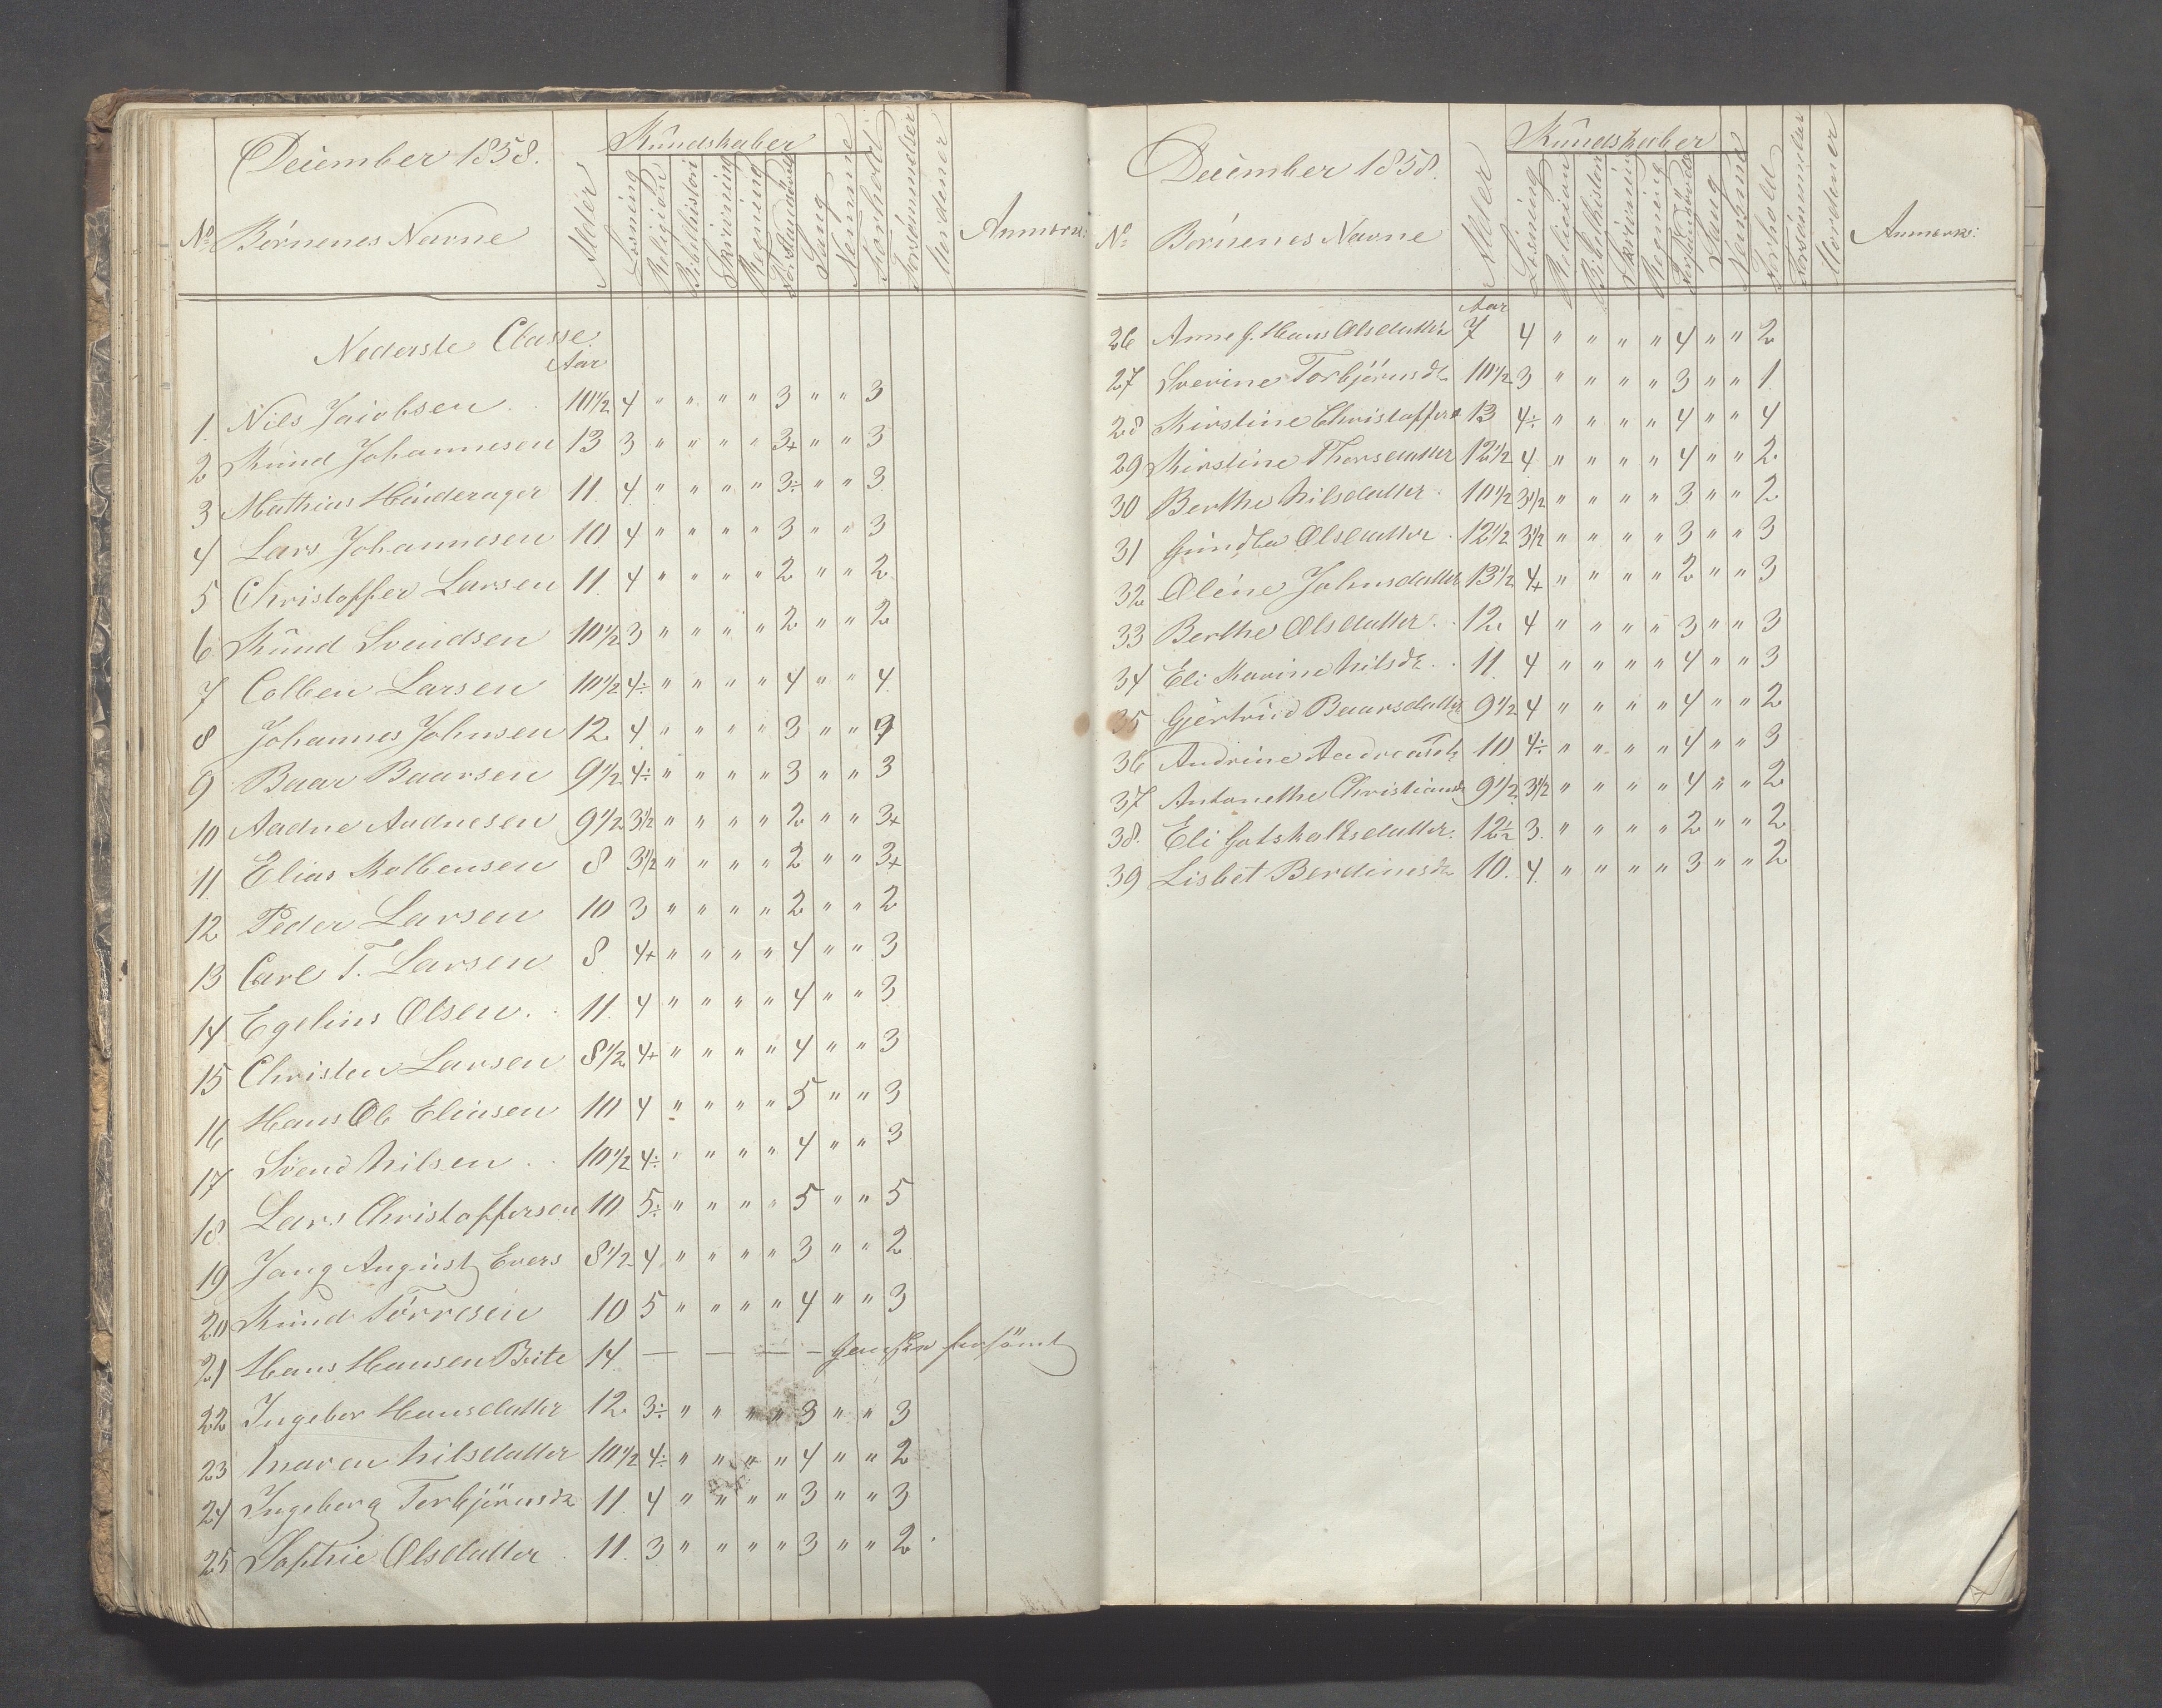 December 1858.
Kundskaber
No Börnenes Navne Alder Læsning Religion Bibelhistori Skrivning Regning Forstandsövelse Sang Nemme Forhold Forsömmelser Mordener Anmærk:
Nederste Classe.
Aar
1. Nils Jacobsen . . 10 1/2 4 " " " " 3 " " 3
2 Knud Johannesen 13 3 " " " " 3+ " " 3
3 Mathias Hinderager 11. 4. " " " " 3÷ " " 3
4 Lars Johannesen 10 4 " " " " 3 " " 3
5 Christoffer Larsen 11. 4 " " " " 2 " " 2
6 Knud Svendsen 10 1/2 3 " " " " 2 " " 2
7 Colben Larsen 10 1/2 4÷ " " " " 4 " " 4.
8 Johannes Johnsen 12 4 " " " " 3 " "
9 Baar Baarsen 9 1/2 4÷ " " " " 3 " " 3
10 Aadne Aadnesen 9 1/2 3 1/2 " " " " 2 " " 3+
11. Elias Kolbensen 8 3 1/2 " " " " 2 " " 3+
12 Peder Larsen 10 3 " " " " 2 " " 2
13 Carl T. Larsen 8. 4+ " " " " 4 " " 3
14 Egelius Olsen. . 11. 4 " " " " 4 " " 3
15 Christen Larsen 8 1/2 4+ " " " " 4 " " 3
16 Hans Ol Eliasen 10 4 " " " " 5 " " 3
17 Svend Nilsen . . 10 1/2 4÷ " " " " 4 " " 3
18 Lars Christoffersen 10 5÷ " " " " 5 " " 5
19 August Evers 8 1/2 4 " " " " 3 " " 2
20 Knud Törresen 10 5 " " " " 4 " " 3
21 Hans Hansen 14 — — — — Ganske forsömt
22 Ingebor Hansdatter 12 3÷ " " " " 3 " " 3
23 Maren Nilsdatter 10 1/2 4÷ " " " " 4 " " 2
24 Ingeborg Torbjörnsdr 11. 4 " " " " 3 " " 3
25 Sophie Olsdatter . 11. 3 " " " " 3 " " 2
December 1858.
Kundskaber
No Börnenes Navne Alder Læsning Religion Bibelhistori Skrivning Regning Forstandsövelse Sang Nemme Forhold Forsömmelser Mordener Anmærk:
Aar
26 Anne G. Hans Olsdatter 7 4 " " " " 4 " " 2
27 Severine Torbjörnsdr 10 1/2 3 " " " " 3 " " 1.
28 Kirstine Christoffers 13 4÷ " " " " 4 " " 4
29 Kirstine Thorsdatter 12 1/2 4 " " " " 4 " " 2
30 Berthe Nilsdatter . 10 1/2 3 1/2 " " " " 3 " " 2
31 Gundla Olsdatter . 12 1/2 3 1/2 " " " " 3 " " 3
32 Oline Johnsdatter 13 1/2 4+ " " " " 2 " " 3
33 Berthe Olsdatter . 12. 4 " " " " 3 " " 3
34 Eli Karine Nilsdr. . 11. 4 " " " " 4 " " 3
35 Gjertrud Baarsdatter 9 1/2 4 " " " " 4 " " 2
36 Andrine Andreasdr 10 4÷ " " " " 4 " " 3
37 Antonethe Christiansdr 9 1/2 3 1/2 " " " " 4 " " 2
38. Eli Gotskalksdatter. 12 1/2 3. " " " " 2 " " 2
39 Lisbet Berdinesdr 10. 4. " " " " 3 " " 2